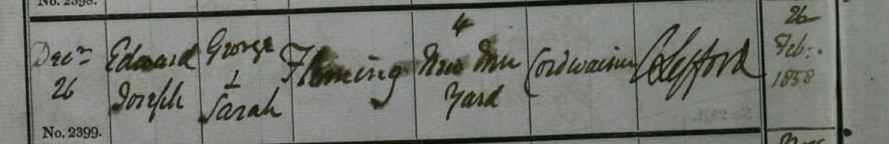 No. 2398.
Decr 26
Edward Joseph
George & Sarah
Fleming
4 New Inn Yard
Cordwainer
26 Feb: 1858
No. 2399.